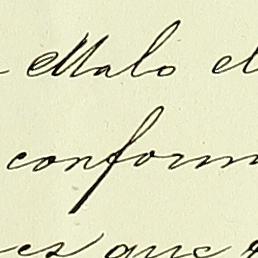 Malo el
conform
es que